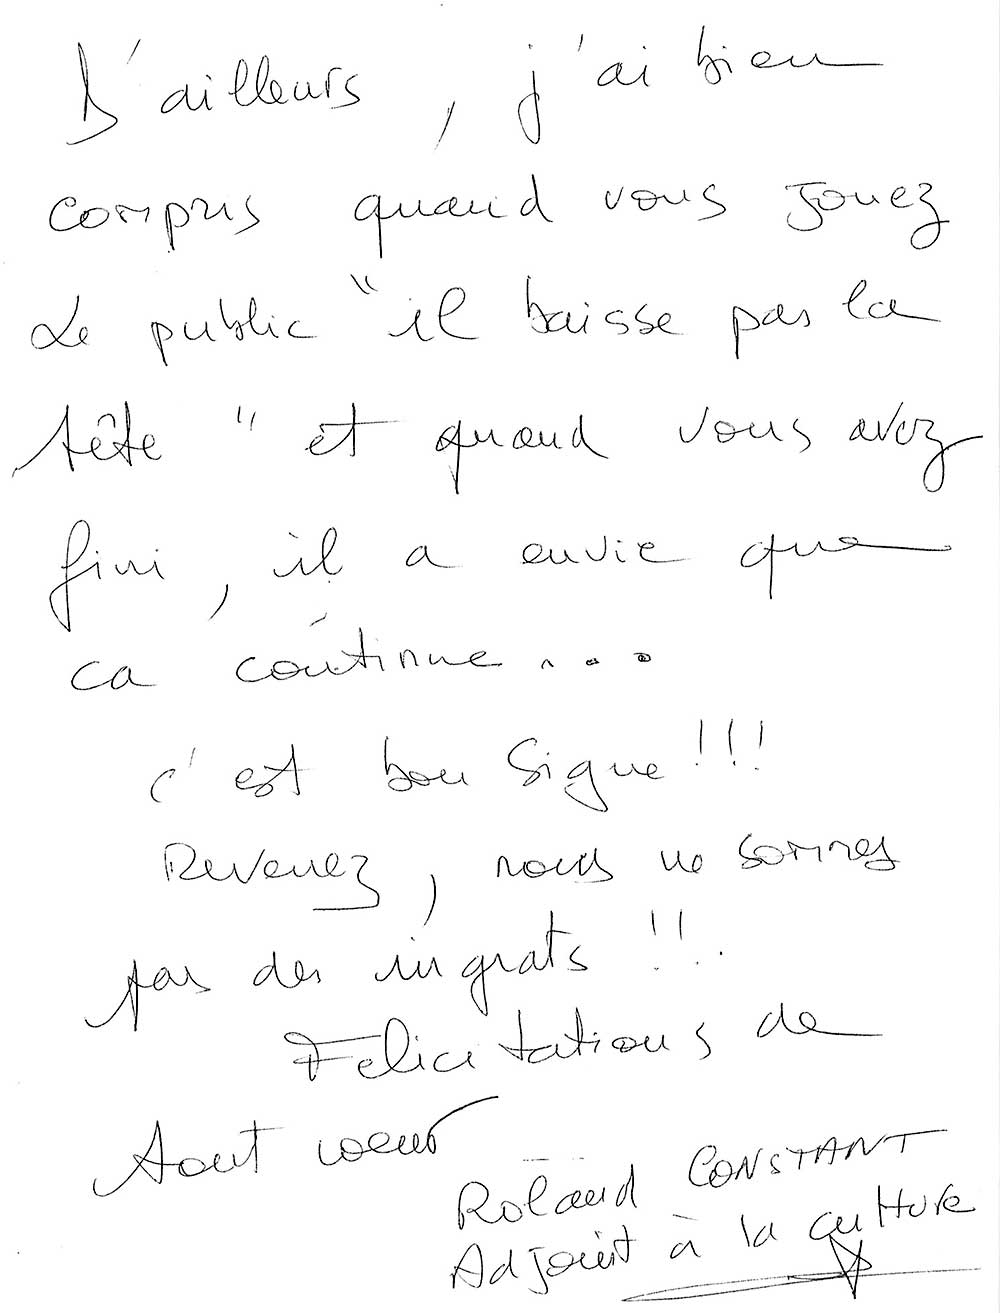 D'ailleurs, j'ai bien
compris quand vous jouez
Le public "il baisse pas la
tête" et quand vous avez
fini, il a envie que
ca continue...
c'est bon signe!!!
Revenez, nous ne sommes
pas des ingrats!!.
Felicitations de
tout coeur
Roland CONSTANT
Adjoint à la culture